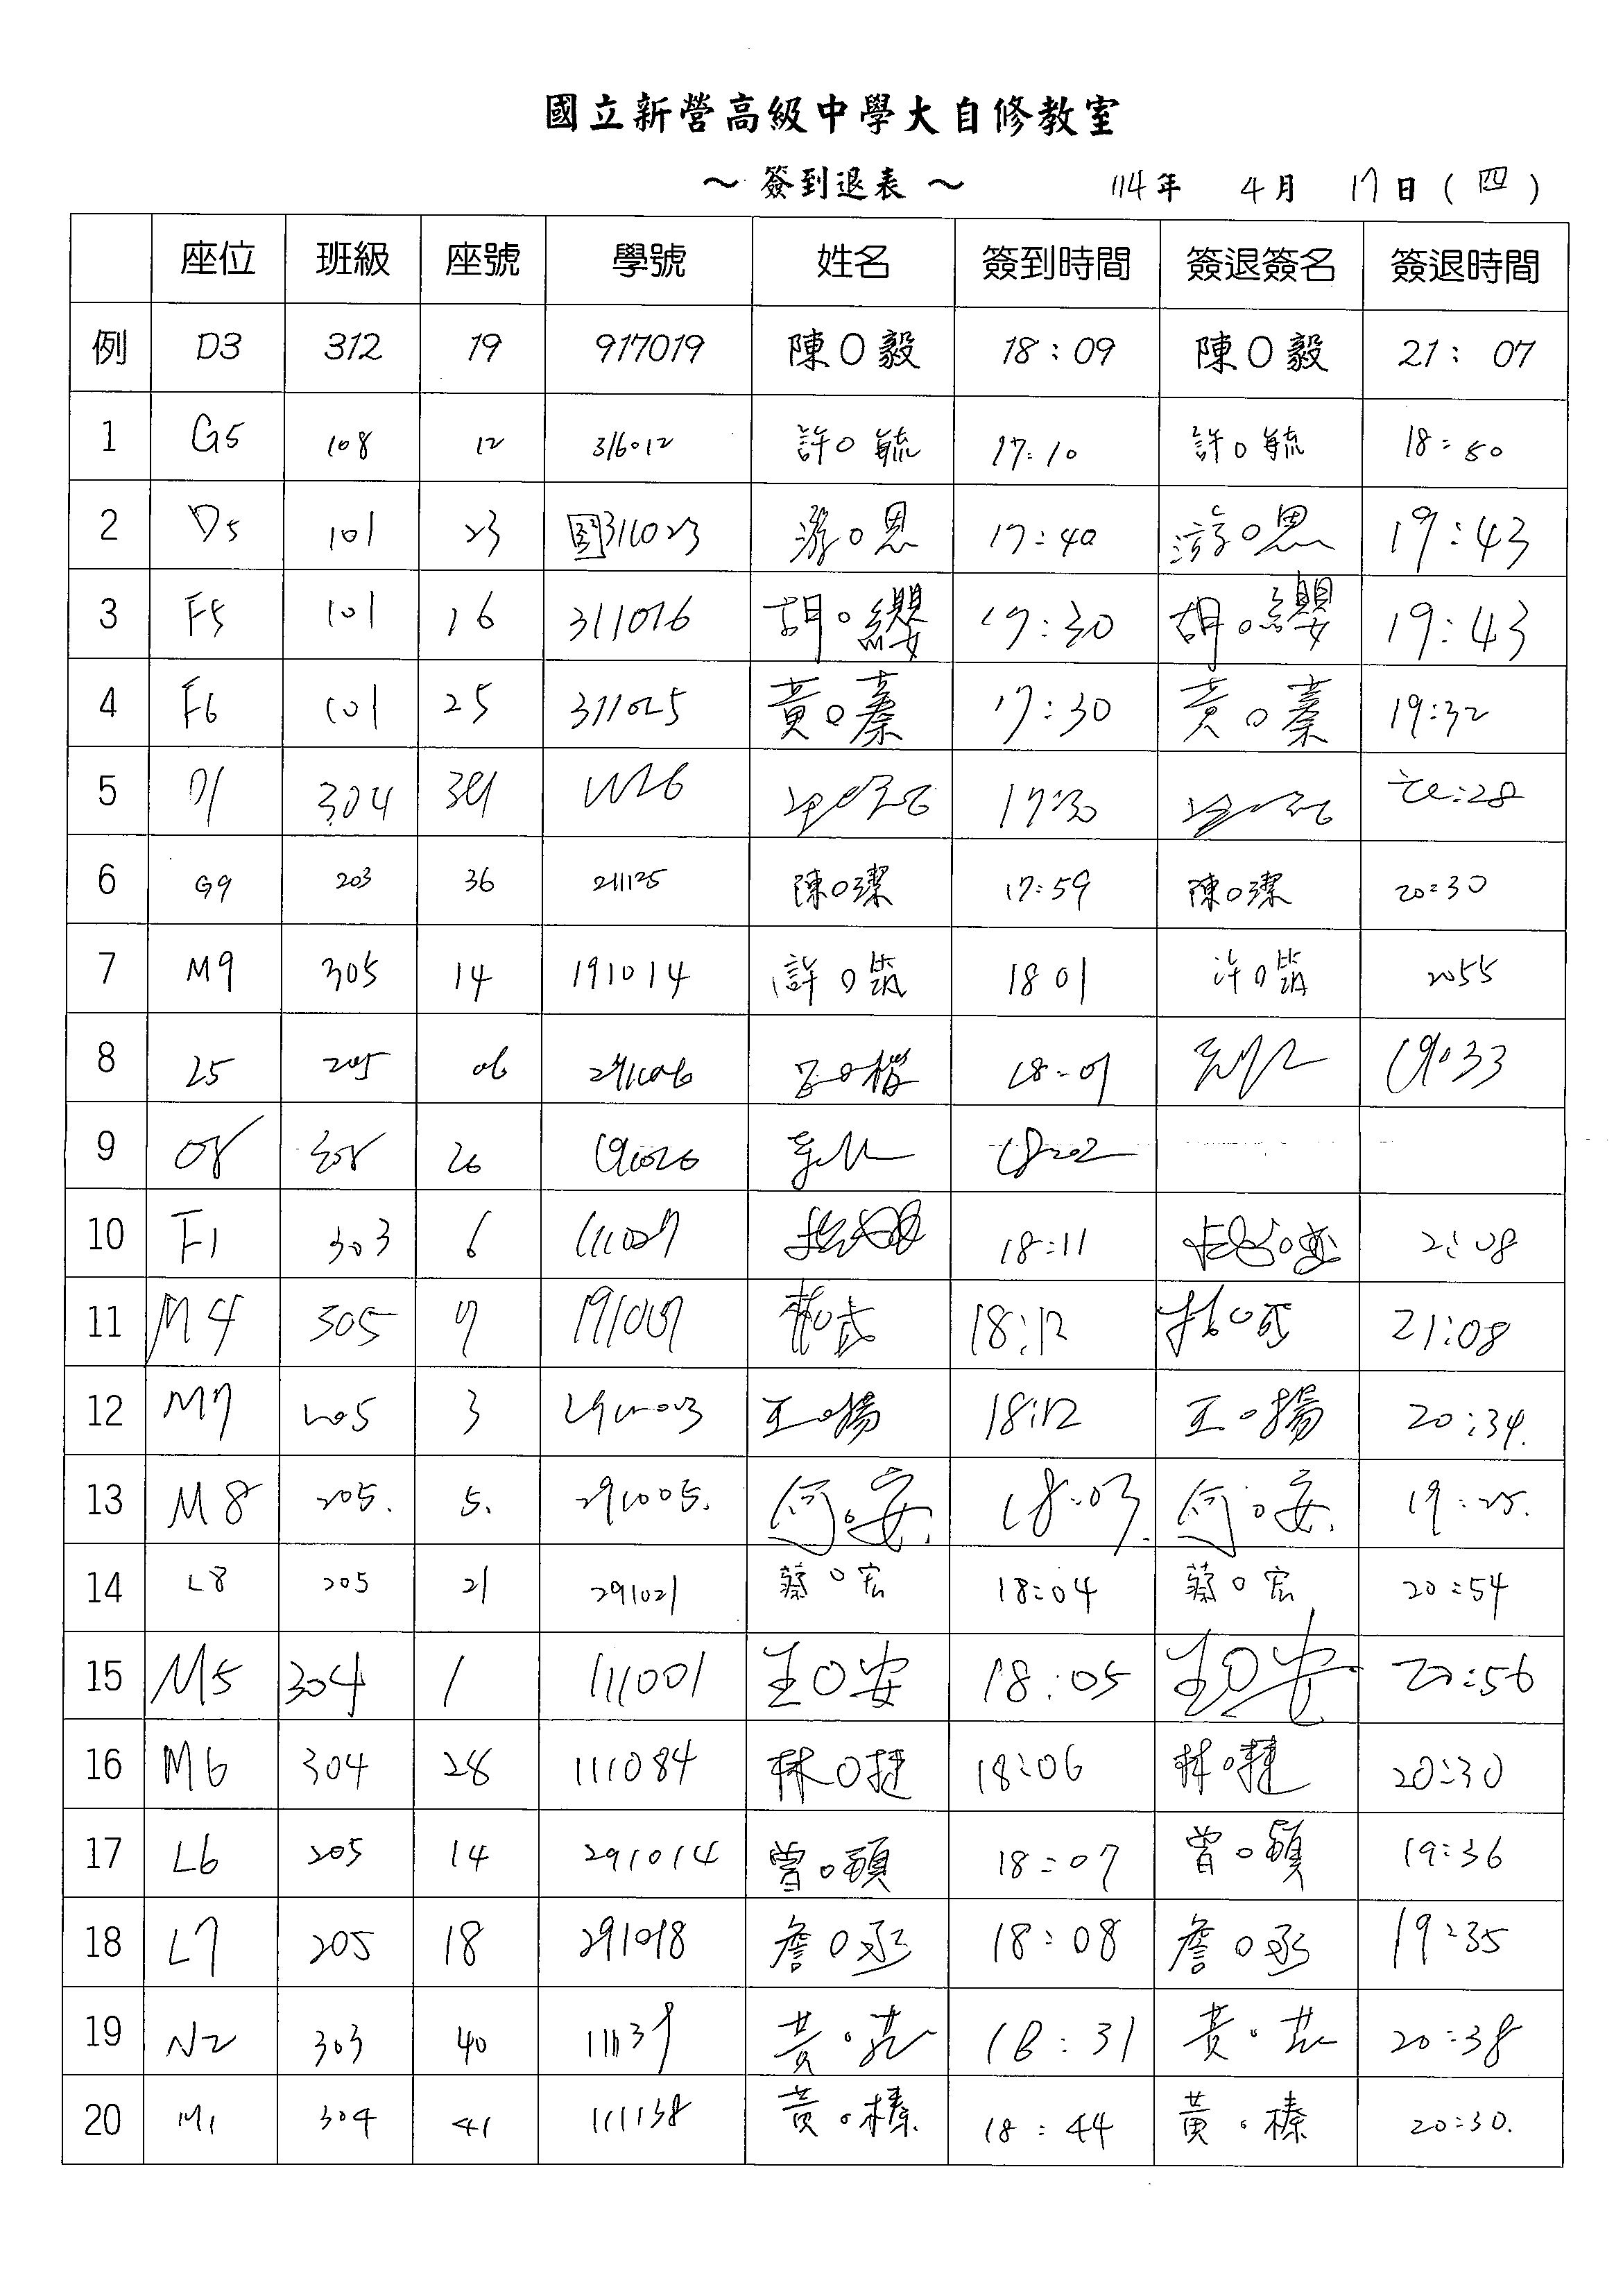 國立新營高級中學大自修教室
～簽到退表～ 114年 4月 17日(四)
座位 班級 座號 學號 姓名 簽到時間 簽退簽名 簽退時間
例 D3 312 19 917019 陳O毅 18:09 陳O毅 21:07
1 G5 108 12 316012 許O毓 17:10 許O毓 18:50
2 D5 101 23 311023 游O恩 17:40 游O恩 19:43
3 F5 101 16 311016 胡O纓 17:30 胡O纓 19:43
4 F6 101 25 311025 黃O蓁 17:30 黃O蓁 19:32
5 304 17:30
6 G9 203 36 211125 陳O潔 17:59 陳O潔 20:30
7 M9 305 14 191014 許O筑 18 01 許O筑 2055
8 L5 205 06 291006 18:01 19:33
9 O8 308 26 18:02
10 F1 303 6 111007 18:11 21:08
11 M4 305 7 191007 18:12 21:08
12 M7 205 3 291003 王O揚 18:12 王O揚 20:34.
13 M8 205. 5. 291005. 何O安. 18:03. 何O安. 19:25.
14 L8 205 21 291021 蔡O宏 18:04 蔡O宏 20:54
15 M5 304 1 111001 王O安 18:05 王O安 20:56
16 M6 304 28 111084 林O捷 18:06 林O捷 20:30
17 L6 205 14 291014 曾O碩 18:07 曾O碩 19:36
18 L7 205 18 291018 詹O丞 18:08 詹O丞 19:35
19 N2 303 40 18:31 20:38
20 M1 304 41 111138 黃O榛. 18:44 黃O榛 20:30.